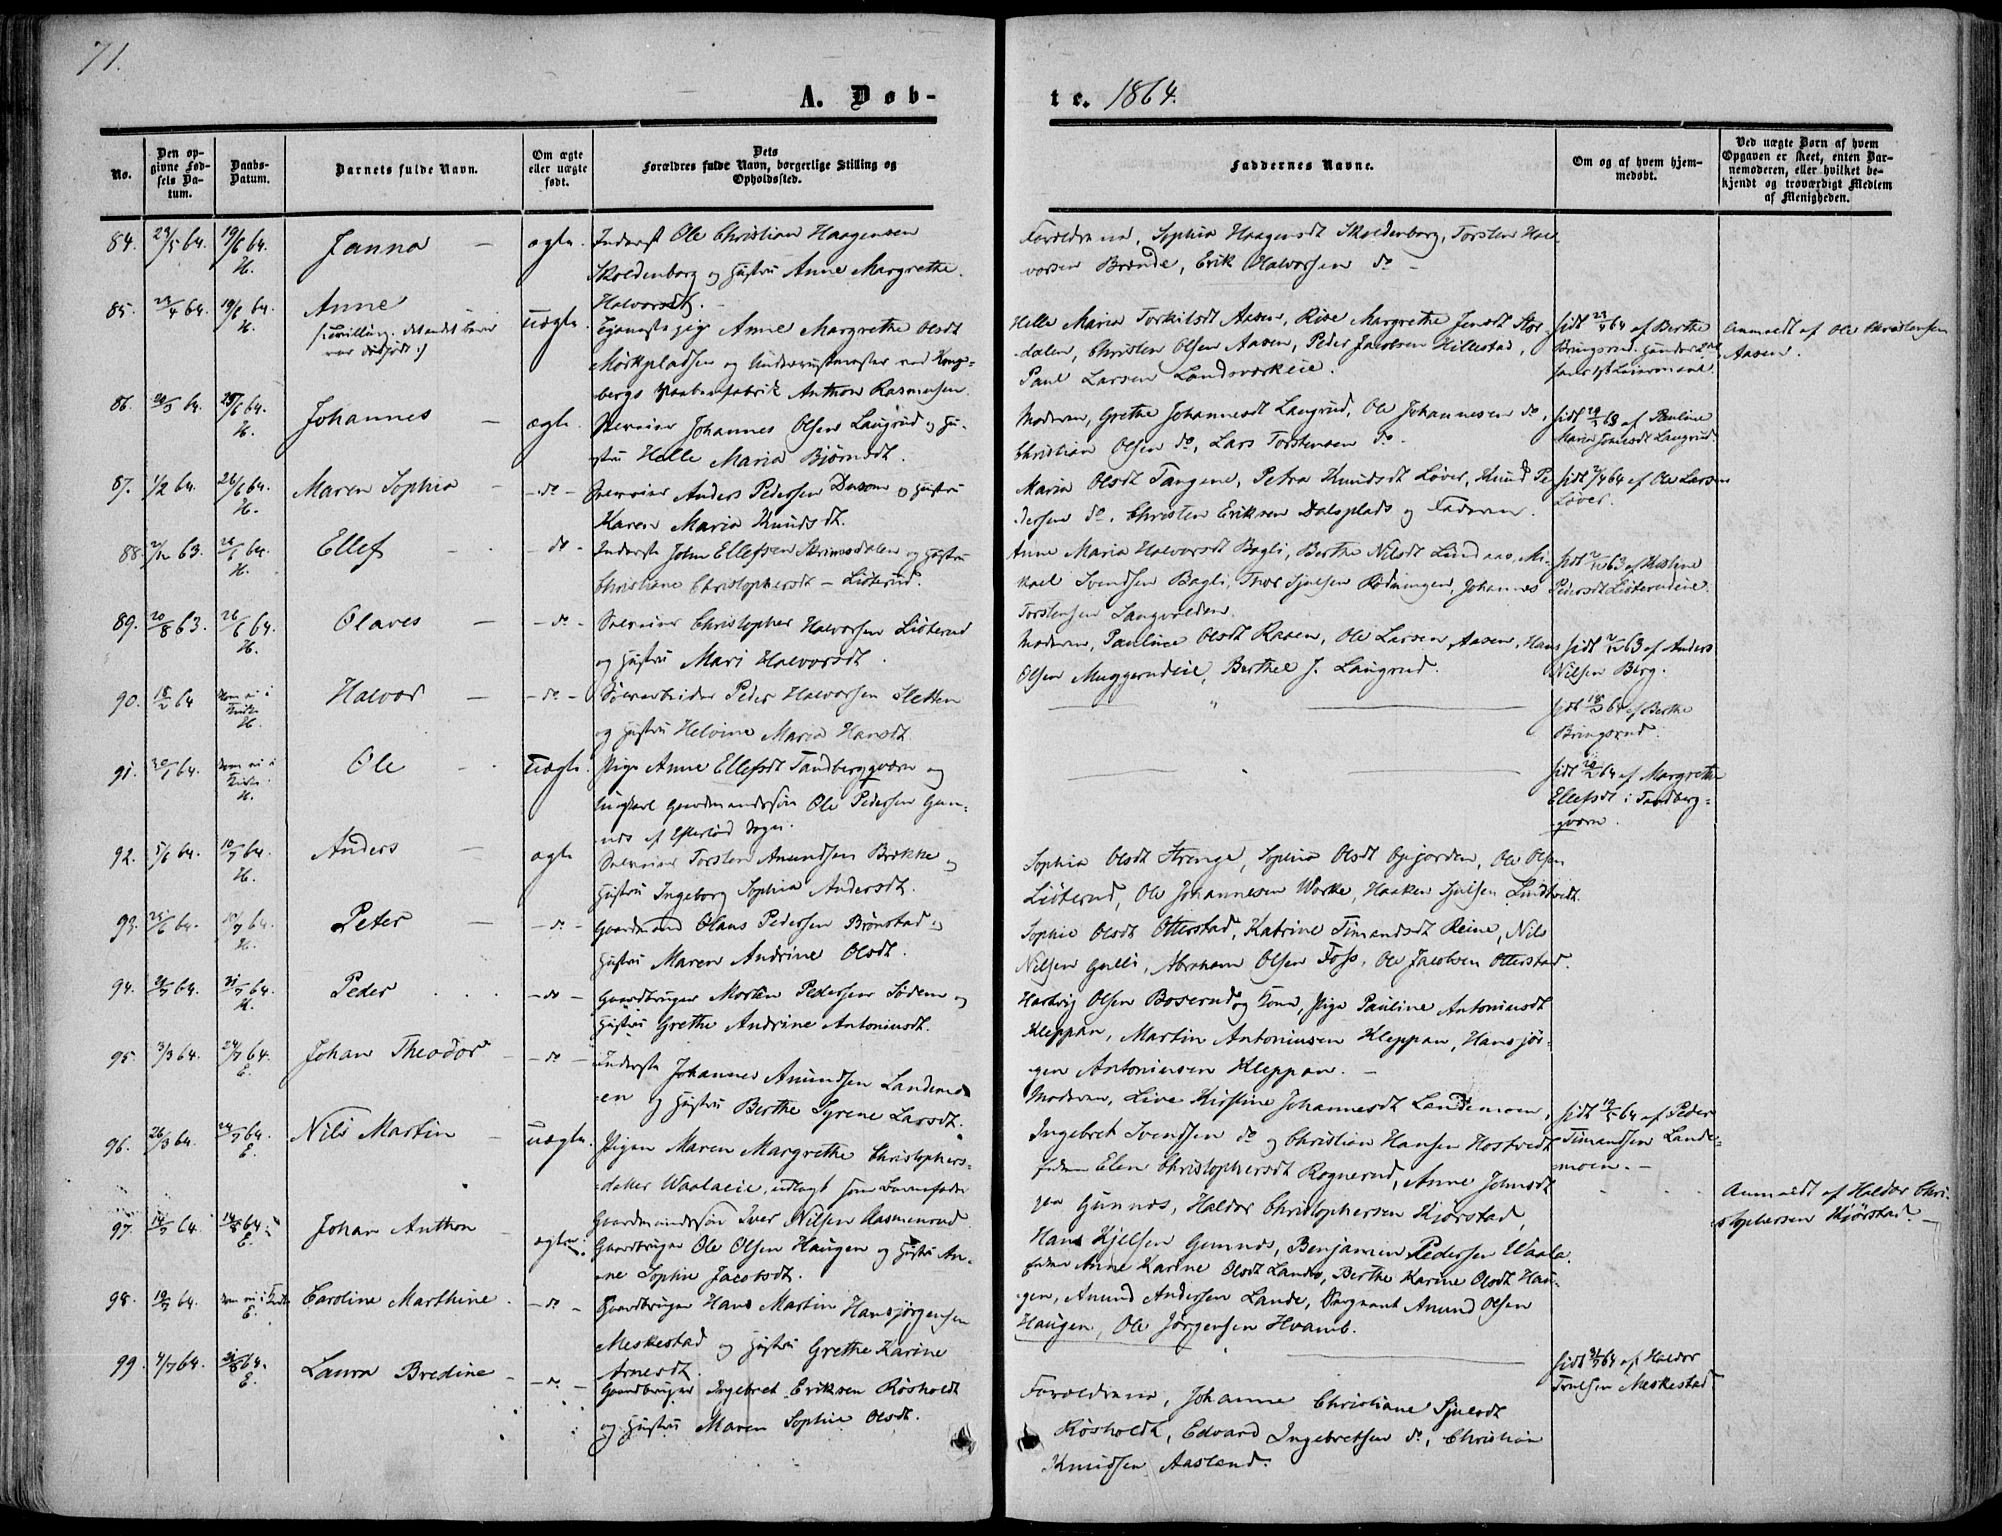 71.
A. Døb-
te. 1864.
No.
Den op-
givne Fød-
sels Da-
tum.
Daabs-
Datum.
Barnets fulde Navn.
Om ægte
eller uægte
født.
Dets
Forældres fulde Navn, borgerlige Stilling og
Opholdssted.
Faddernes Navne.
Om og af hvem hjem-
medøbt.
Ved uægte Børn af hvem
Opgaven er skeet, enten Bar-
nemoderen, eller hvilket be-
kjendt og troværdigt Medlem
af Menigheden.
84. 19/6 64. H. Janna – ægte. Inderst Ole Christian Haagensen
Skoldenborg og Hustru Anne Margrethe
Halvorsdt.
Forældrene, Sophia Haagensdt Skoldenborg, Torsten Hal-
vorsen Brænde, Erik Halvorsen do –
85. 19/6 64. H. Anne
uægte. Anne Margrethe Olsdt
Mørkpladsen og ved Kongs-
bergs Vaabenfabrik Anthon Rasmussen.
Helle Maria Torkilsdt Aasen, Margrethe Jensdt
dalen, Christen Olsen Aasen, Peder Jacobsen Hillestad,
Paul Larsen Landsværkeie.
af Berthe
Bringsrud.
Anmeldt af Ole Christensen
Aasen.
86. Johannes – ægte. Johannes Olsen Laugrud og Hu-
stru Helle Maria Bjørnsdt.
Moderen, Grethe Johannesdt Laugrud, Ole Johannesen do,
Christian Olsen do, Lars Torstensen do.
af Pauline
Maria Laugrud
87. 1/2 64. 26/6 64. H. Maren Sophia – – do – Anders Pedersen og Hustru
Karen Maria Knudsdt.
Maria Olsdt Tangene, Petra Knudsdt Løver, Knud Pe-
dersen do, Christen Eriksen Dalsplads og Faderen.
af Ole Larsen
Løver.
88. 26/6 64. H. Ellef – do – Inderste John Ellefsen Skrimsdalen og Hustru
Christiane Christophersdt – Listerud.
Anne Maria Halvorsdt Bagli, Berthe Nilsdt Lindaas, Mi-
kael Svendsen Bagli, Thor Sjulsen Rødningen, Johannes
Torstensen Langvolden.
Pedersdt
89. 20/8 63. 26/6 64. H. Olaves – – do – Christopher Halvorsen Listerud
og Hustru Mari Halvorsdt.
Moderen, Pauline Olsdt Raaen, Ole Larsen Aasen, Hans
Olsen Muggerudeie, Berthel J. Laugrud.
af Anders
Nilsen Berg.
90. 18/2 64 H. Halvor – – do – Sølvarbeider Peder Halvorsen Sletten
og Hustru Helvine Maria Hansdt.
18/2 64 af Berthe
Bringsrud.
91. H. Ole uægte. Pige Anne Ellefsdt Tandbergqværn og
Ungkarl Gaardmandssøn Ole Pedersen Gun-
nes af Eftelød Sogn.
af Margrethe
Ellefsdt i Tandberg-
qværn.
92. 5/6 64. 10/7 64. H. Anders – ægte Torsten Amundsen Brekke og
Hustru Ingeborg Sophia Andersdt.
Sophia Olsdt Strenge, Sophia Olsdt Opjorden, Ole Olsen
Listerud, Ole Johannesen Værke, Haaken Sjulsen Lindtvedt.
93. 10/7 64. H. Peter – – do – Gaardmand Olaus Pedersen Brønstad og
Hustru Maren Andrine Olsdt.
Sophie Olsdt Otterstad, Katrine Timandsdt Reine, Nils
Nilsen Gulli, Abraham Olsen Foss, Ole Jacobsen Otterstad.
94. 31/7 64. H. Peder – do – Gaardbruger Morten Pedersen Sødem og
Hustru Grethe Andrine Antoniusdt.
Hartvig Olsen Boserud og Kone, Pige Pauline Antoniusdt
Kleppan, Martin Antoniusen Kleppan, Hans Jør-
gen Antoniusen Kleppan. –
95. 3/3 64. 24/7 64. E. Johan Theodor – – do – Inderste Johannes Amundsen Landemo-
en og Hustru Berthe Syrene Larsdt.
Moderen, Live Kirstine Johannesdt Landemoen,
Ingebret Svendsen do og Christian Hansen Hostvedt
af Peder
Timandsen Lande-
moen. –
96. 26/3 64. 24/7 64. E. Nils Martin – uægte. Pigen Maren Margrethe Christophers-
datter Waalaeie, udlagt som Barnefader
Gaardmandssøn Iver Nilsen Aasmunrud.
Elen Christophersdt Rognerud, Anne Johnsdt
Gunnes, Haldor Christophersen Kjørstad,
Hans Kjelsen Gunnes, Benjamin Pedersen Waala.
Anmeldt af Haldor Chri-
stophersen Kjørstad. –
97. 14/8 64. E. Johan Anthon – ægte. Gaardbruger Ole Olsen Haugen og Hustru An-
ne Sophie Jacobsdt.
Anne Karine Olsdt Lande, Berthe Karine Olsdt Hau-
gen, Amund Andersen Lande, Sergeant Amund Olsen
Haugen, Ole Jørgensen Hvamb.
98. E. Caroline Marthine – do – Gaardbruger Hans Martin Hansjørgensen
Meskestad og Hustru Grethe Karine
Arnesdt.
af Haldor
Truelsen Meskestad
99. 4/7 64. E. Laura Bredine – – do – Gaardbruger Ingebret Eriksen Røsholdt
og Hustru Maren Sophie Olsdt.
Forældrene, Johanne Christiane Sjulsdt
Røsholdt, Edvard Ingebretsen do, Christian
Knudsen Aasland.